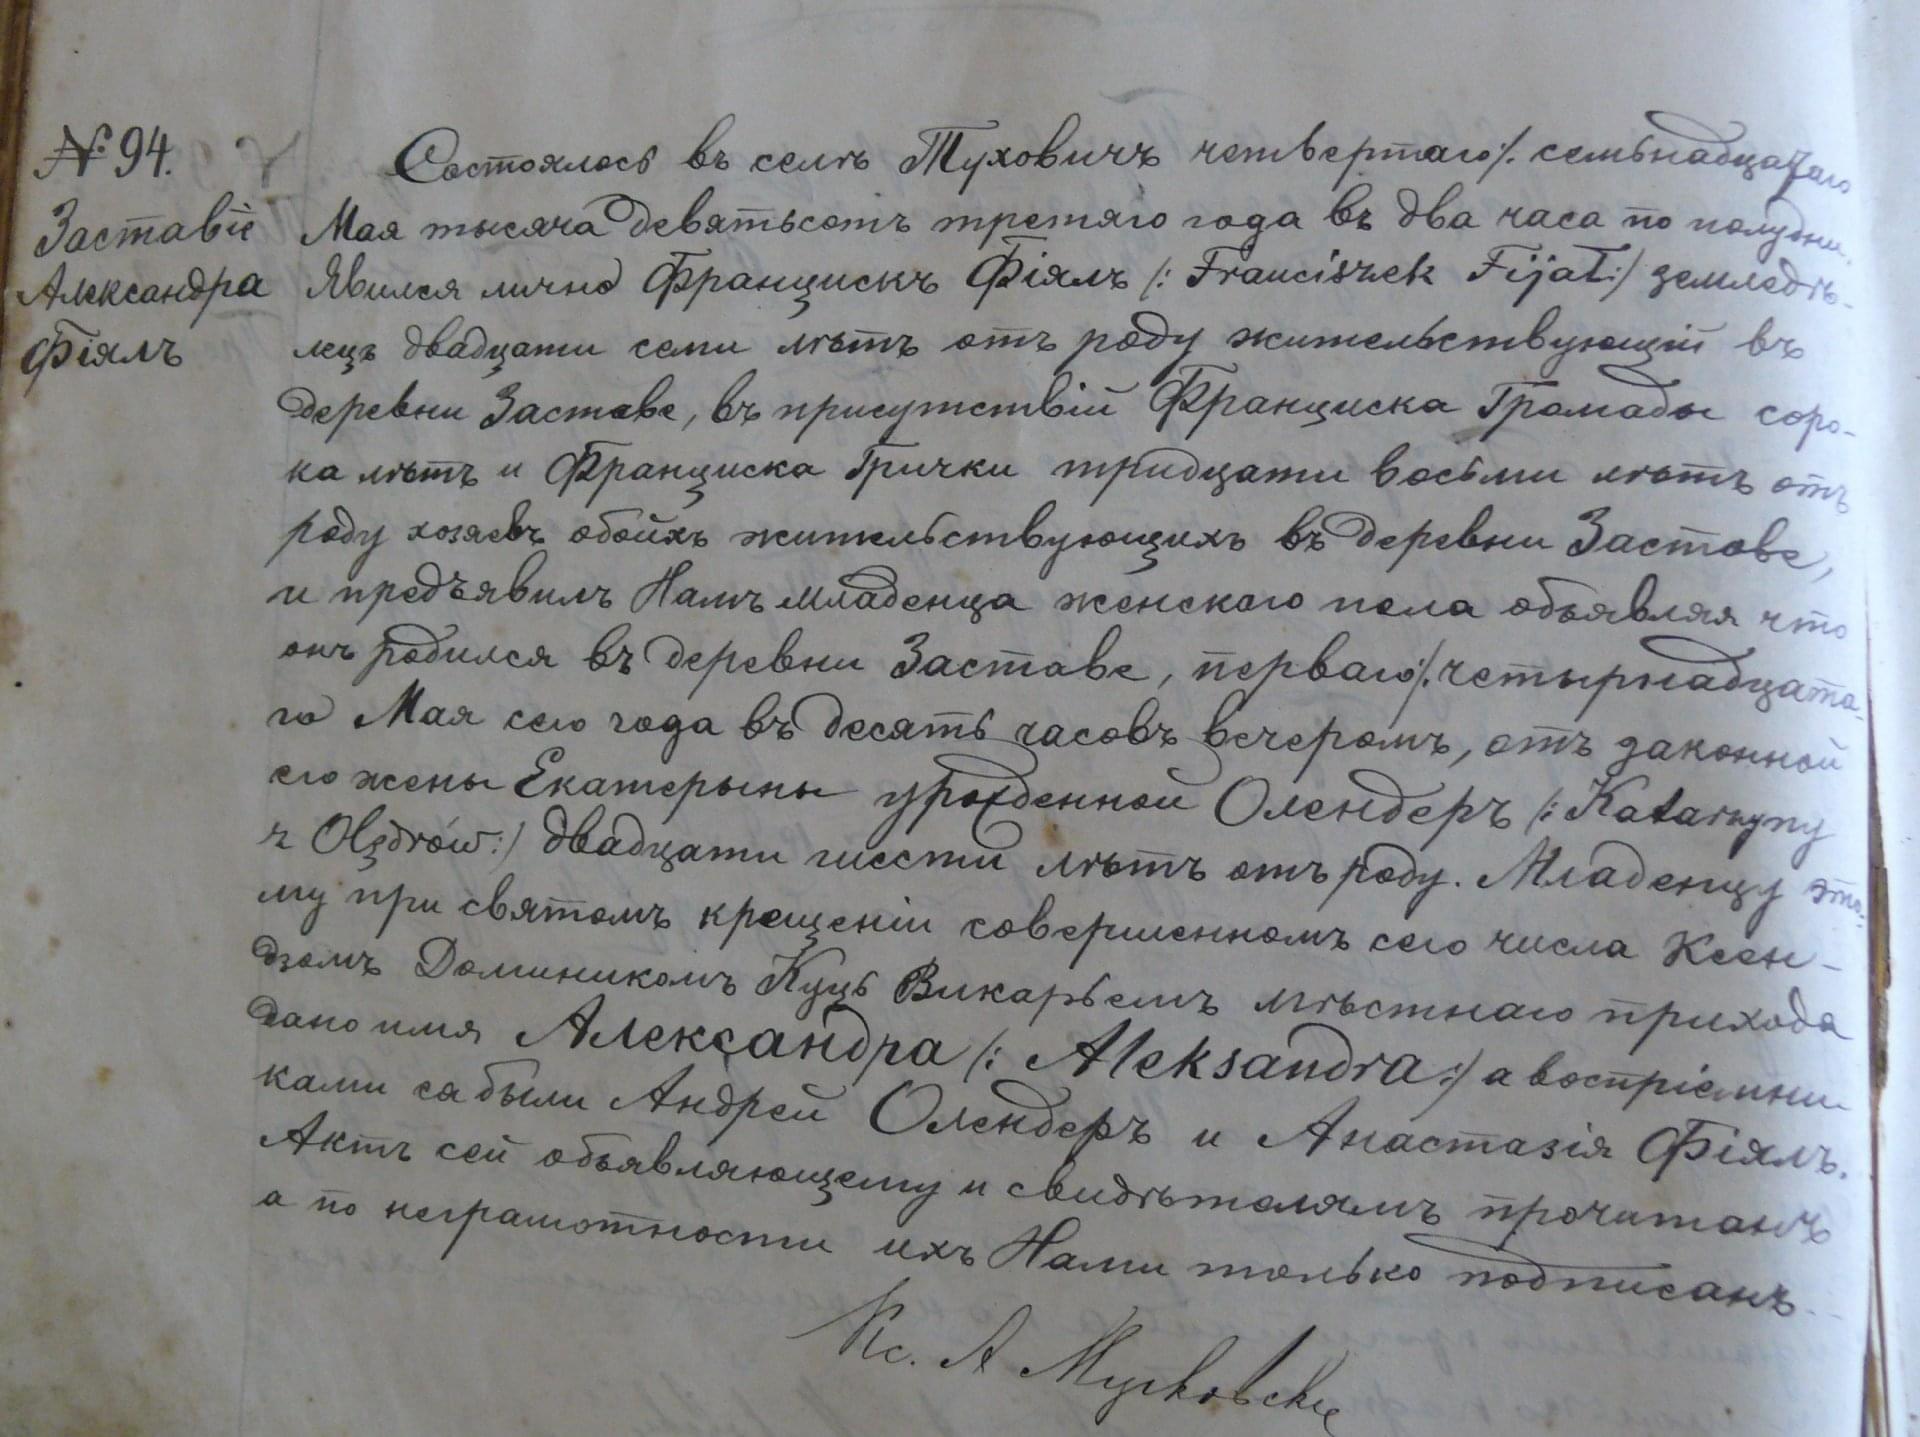 № 94.
Заставіе
Александра
Фіялъ
Состоялось въ селѣ Туховичъ четвертаго/. семьнадцатаго
Мая тысяча девятьсотъ третяго года въ два часа по полудни.
Явился лично Францискъ Фіялъ /: Franciszek Fijał :/ земледѣ-
лецъ двадцати семи лѣтъ отъ роду жительствующій въ
деревни Заставе, въ присутствіи Франциска Громады соро-
ка лѣтъ и Франциска Грички тридцати восьми лѣтъ отъ
роду хозяевъ обойхъ жительствующихъ въ деревни Заставе,
и предъявилъ Намъ младенца женскаго пола объявляя что
онъ родился въ деревни Заставе, перваго/. четырнадцата-
го Мая сего года въ десять часовъ вечеромъ, отъ законной
его жены Екатерыны урожденной Олендеръ /: Katarzyny
z Olędrów :/ двадцати шести лѣтъ отъ роду. Младенцу это-
му при святомъ крещеніи совершенномъ сего числа Ксен-
дзомъ Доминикомъ Куць Викарьемъ мѣстнаго прихода
дано имя Александра /: Aleksandra :/ а воспріемни-
ками ея были Андрей Олендеръ и Анастазія Фіялъ.
Актъ сей объявляющему и свидѣтелямъ прочитанъ
а по неграмотности ихъ Нами только подписанъ.
Кс. А